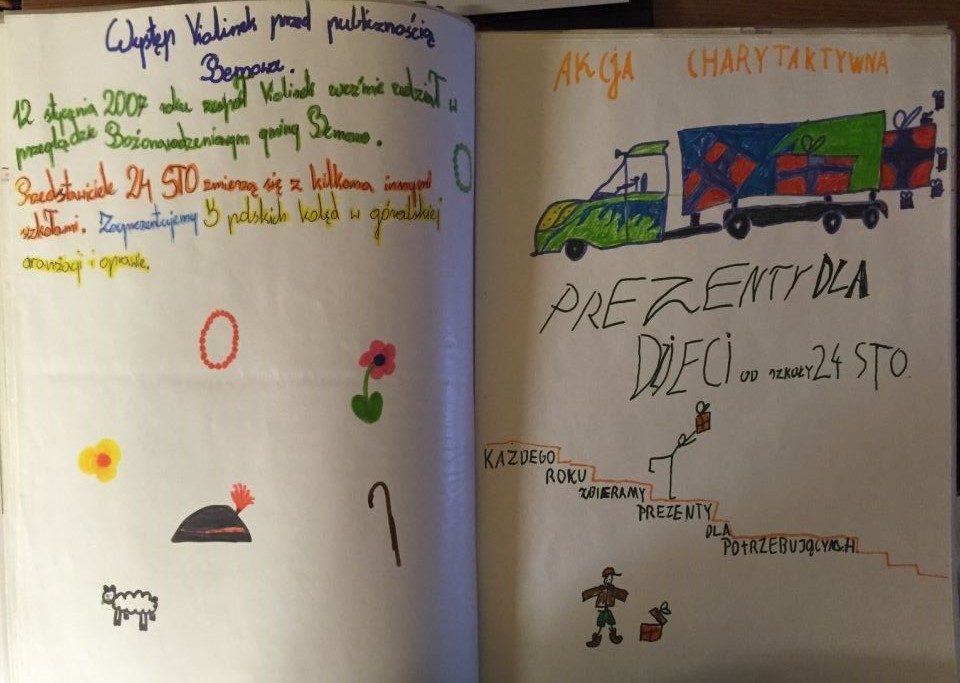 Występ Violinek przed publicznością
Bemowa.
12 stycznia 2007 roku zespół Violinek weźmie udział w
przeglądzie Bożonarodzeniowym gminy Bemowo.
Przedstawiciele 24 STO zmierzą się z kilkoma innymi
szkołami. Zaprezentujemy 5 polskich kolęd w góralskiej
aranżacji i oprawie.
AKCJA CHARYTAKTYWNA
PREZENTY DLA
DZIECI OD SZKOŁY 24 STO.
KAŻDEGO
ROKU
ZBIERAMY
PREZENTY
DLA
POTRZEBUJĄCYCH